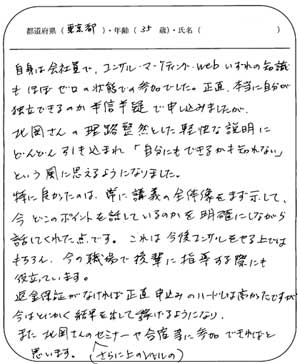 都道府県(東京都)・年齢(35歳)・氏名(　　　)
自身は会社員で、コンサル・マーケティング・Webいずれの知識
もほぼゼロの状態での参加でした。正直、本当に自分が
独立できるのか半信半疑で申し込みましたが、
北岡さんの理路整然とした軽快な説明に
どんどん引き込まれ「自分にもできるかも知れない」
という風に思えるようになりました。
特に良かったのは、常に講義の全体像をまず示して、
今どこのポイントを話しているのかを明確にしながら
話してくれた点です。これは今後コンサルをやる上では
もちろん、今の職場で後輩に指導する際にも
役立っています。
返金保証がなければ正直申込みのハードルは高かったですが
今はとにかく結果を出して稼げるようになり、
また北岡さんのセミナーや合宿等に参加できればと
思います。(さらに上のレベルの)